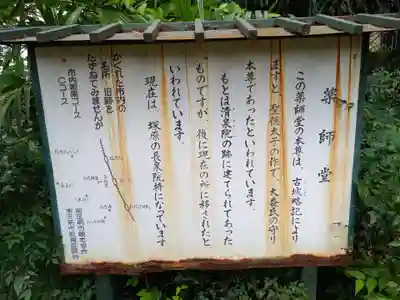 薬師堂
この薬師堂の本尊は、古城略記により
ますと、聖徳太子の作で、大森氏の守り
本尊であったといわれています。
もとは清泉院の跡に建てられてあった
ものですが、後に現在の所に移されたと
いわれています。
現在は、塚原の長泉院持になっています
かくれた市内の
名所・旧跡を
たずねてみませんか
市内散策コース
Cコース
南足柄市観光協会